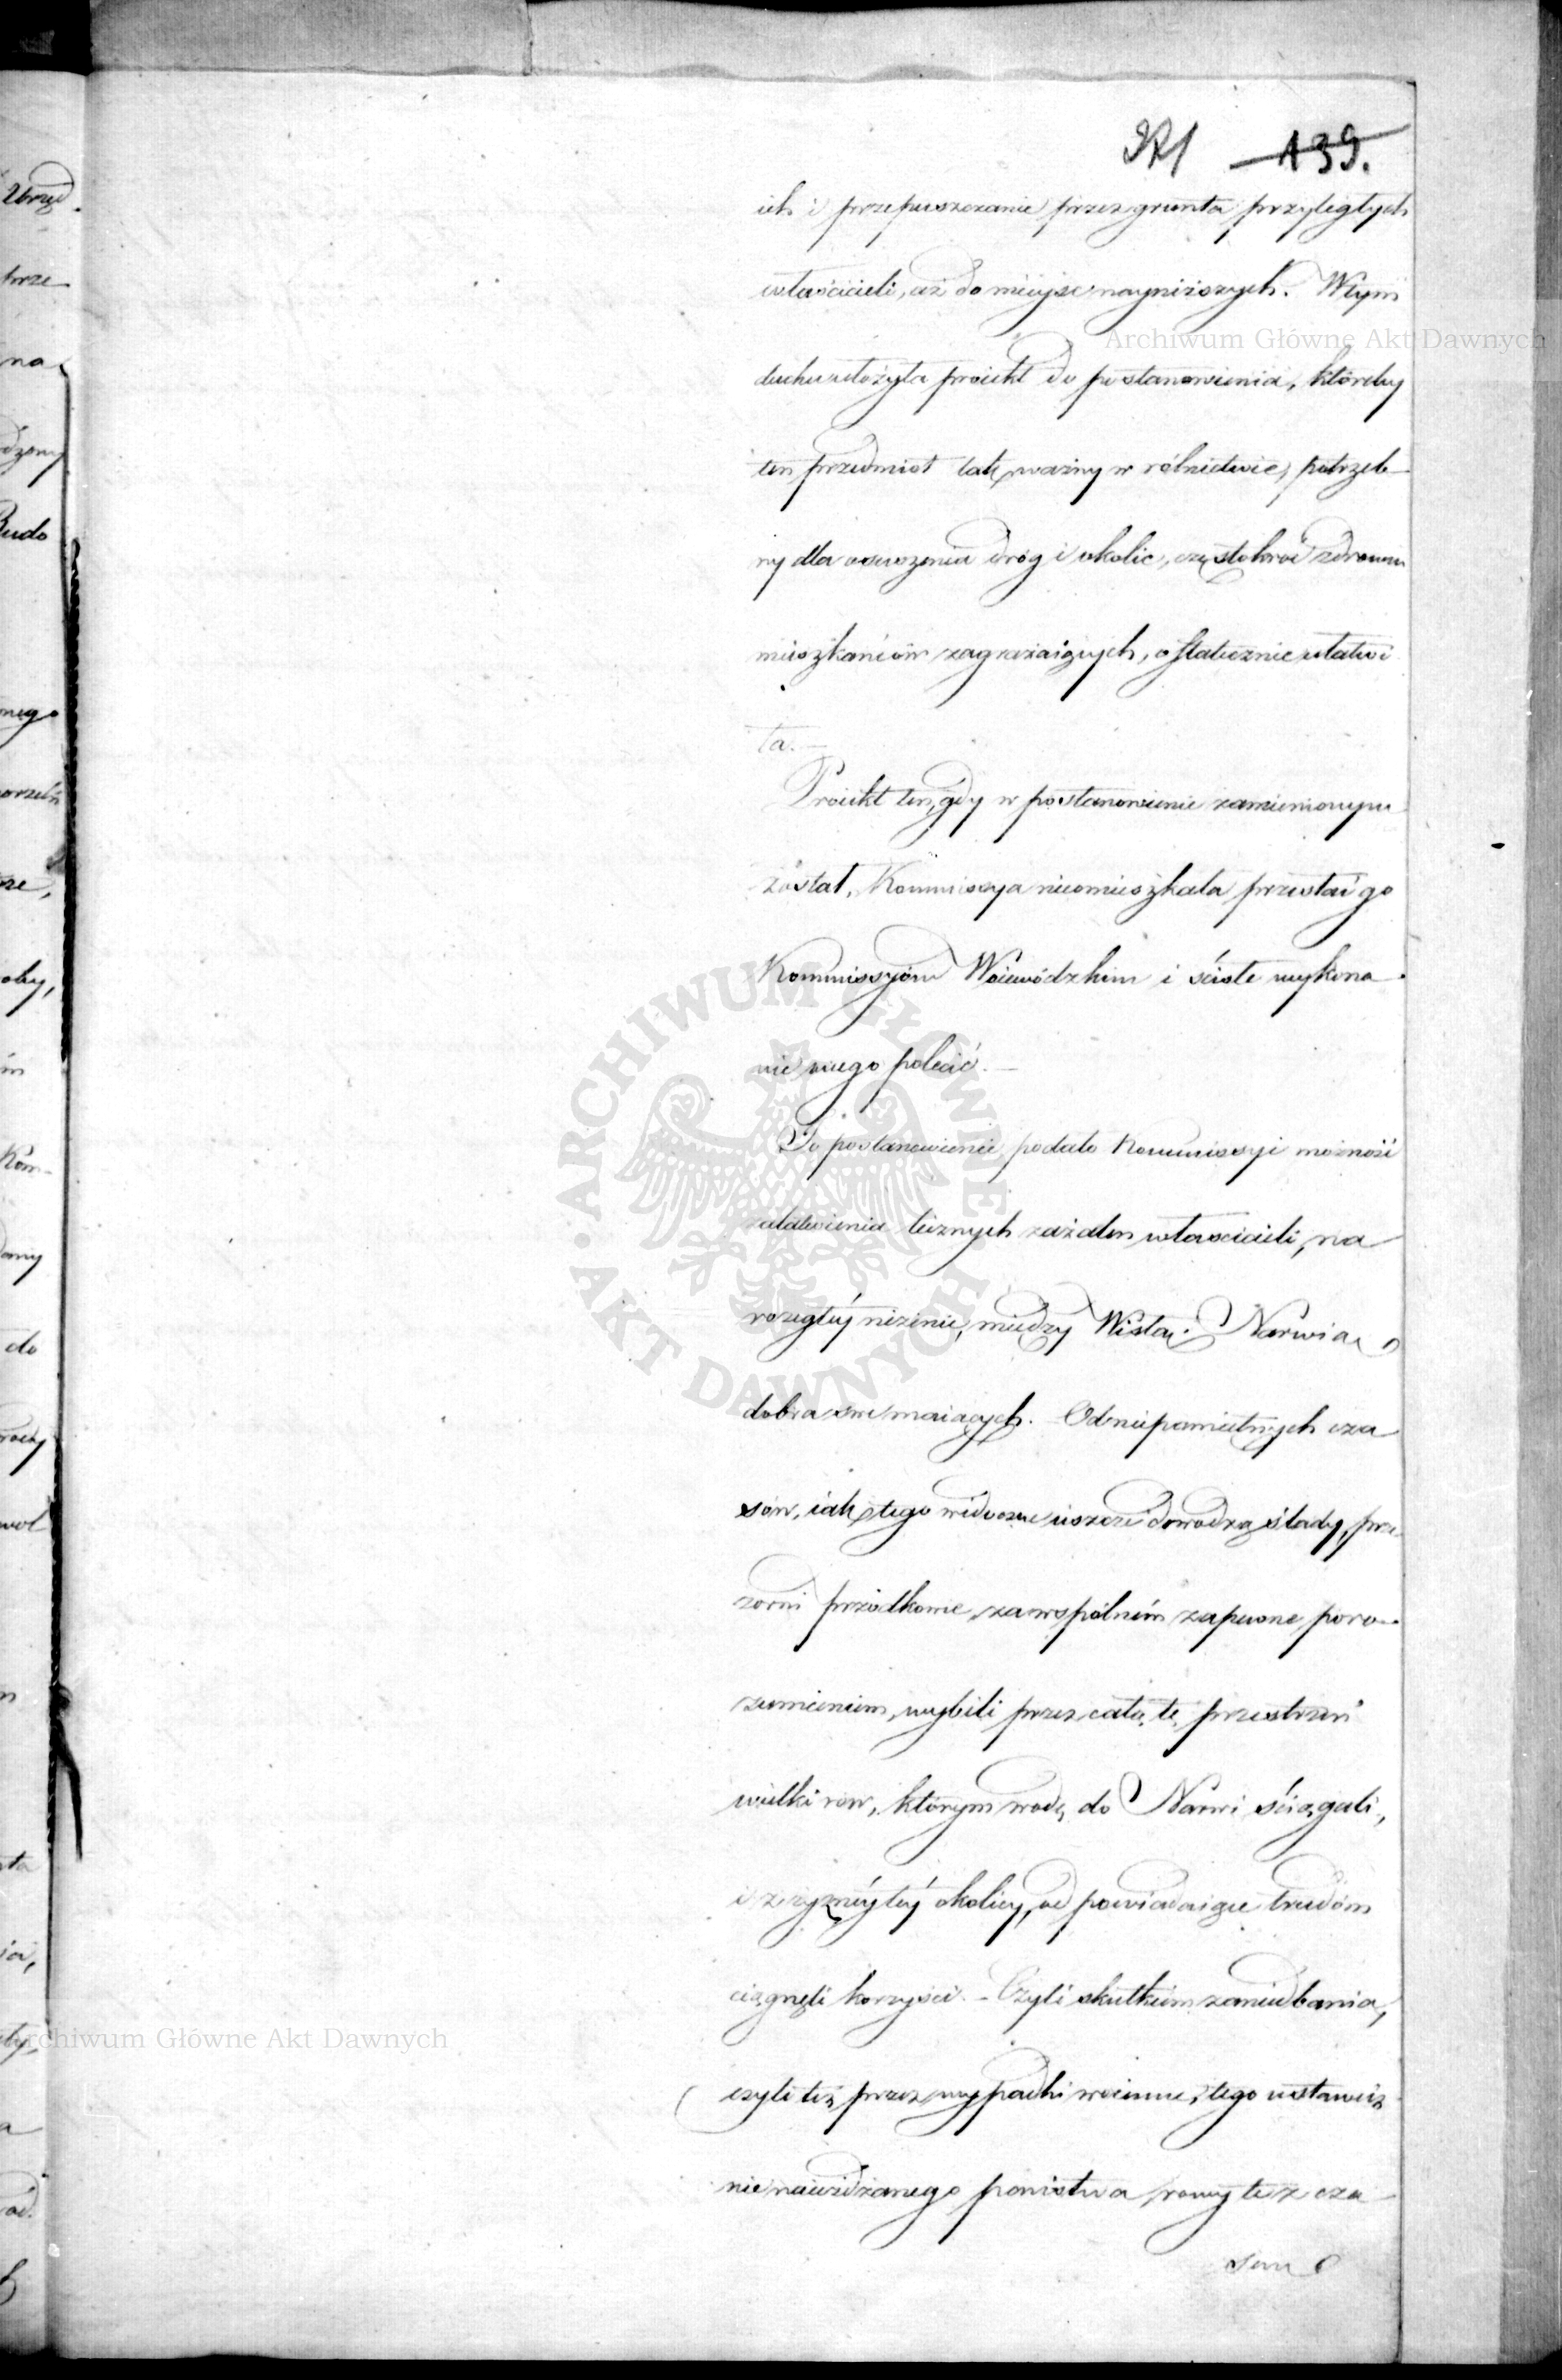 371 139.
ich i przepuszczanie przez grunta przyległych
właścicieli, aż do mieysc nayniższych. W tym
duchu ułożyła proiekt do postanowienia, któreby
ten przedmiot tak ważny w rólnictwie, potrzeb-
ny dla osuszenia dróg i okolic, częstokroć zdrowiu
mieszkańców zagrażaiących, ostatecznie ułatwi
ła.-
Proiekt ten, gdy w postanowienie zamienionym
został, Kommissya nieomieszkała przesłać go
Kommissyóm Woiewódzkim i ścisłe wykona-
nie onego polecić.-
To postanowienie podało Kommissyi możność
załatwienia licznych zażaleń właścicieli, na
rozległéy nizinie, między Wisłą i Narwią
dobra swe maiących. Od niepamiętnych cza
sów, iak tego widoczne ieszcze dowodzą ślady, prze-
zorni przodkowie, za wspólném zapewne poro-
zumieniem, wybili przez całą tę przestrzeń
wielki rów, którym wodę do Narwi ściągali,
i z żyznéy téy okolicy, odpowiadaiące trudóm
ciągnęli korzyści.- Czyli skutkiem zaniedbania,
czyli też przez wypadki woienne, tego ustawicz
nie nawidzanego państwa, rowy te z cza-
sem
Archiwum Główne Akt Dawnych
Archiwum Główne Akt Dawnych
ARCHIWUM GŁÓWNE AKT DAWNYCH
Urzęd.
prze
na
dzony
Budo
nego
sze,
oby,
Kom-
do
wol
ia,